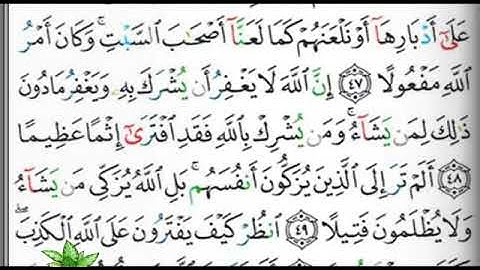 عَلَىٰٓ أَدْبَارِهَآ أَوْ نَلْعَنَهُمْ كَمَا لَعَنَّآ أَصْحَٰبَ ٱلسَّبْتِ ۚ وَكَانَ أَمْرُ
ٱللَّهِ مَفْعُولًا ٤٧ إِنَّ ٱللَّهَ لَا يَغْفِرُ أَن يُشْرَكَ بِهِۦ وَيَغْفِرُ مَا دُونَ
ذَٰلِكَ لِمَن يَشَآءُ ۚ وَمَن يُشْرِكْ بِٱللَّهِ فَقَدِ ٱفْتَرَىٰٓ إِثْمًا عَظِيمًا
٤٨ أَلَمْ تَرَ إِلَى ٱلَّذِينَ يُزَكُّونَ أَنفُسَهُم ۚ بَلِ ٱللَّهُ يُزَكِّى مَن يَشَآءُ
وَلَا يُظْلَمُونَ فَتِيلًا ٤٩ ٱنظُرْ كَيْفَ يَفْتَرُونَ عَلَى ٱللَّهِ ٱلْكَذِبَ ۖ